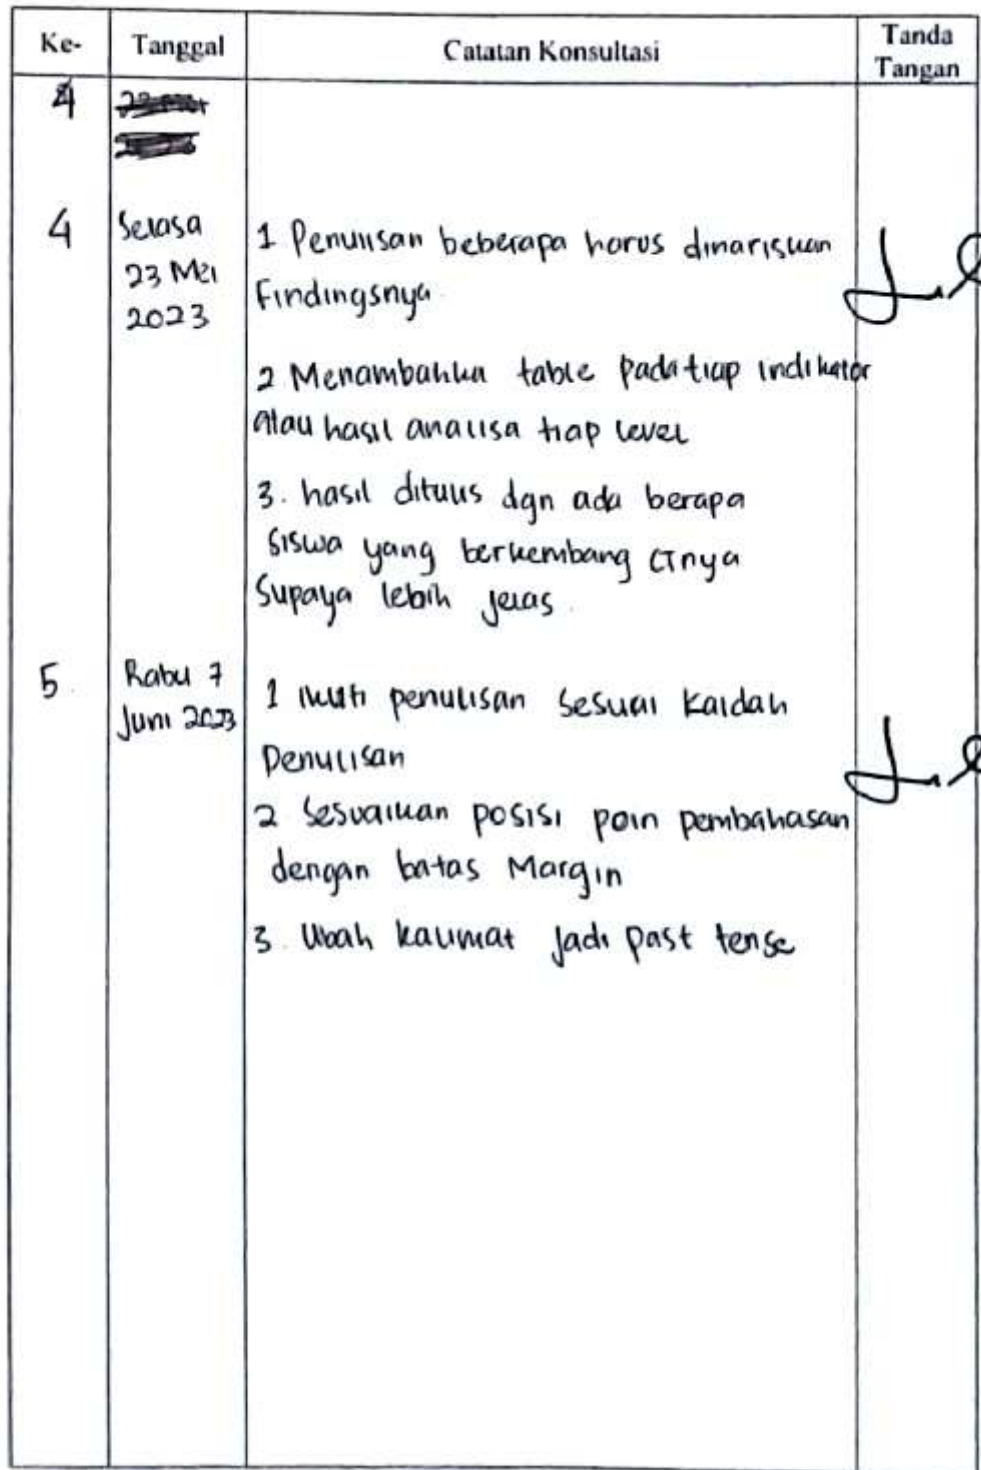 Ke- Tanggal Catatan Konsultasi Tanda Tangan
4
4 Selasa 1 Penulisan beberapa harus dinarisikan
23 Mei Findingsnya.
2023
2 Menambahka table pada tiap indikator
atau hasil analisa tiap level
3. hasil ditulis dgn ada berapa
siswa yang berkembang CTnya
Supaya lebih jelas.
5. Rabu 7 1 Ikuti penulisan sesuai kaidah
Juni 2023 Penulisan
2 Sesuaikan posisi poin pembahasan
dengan batas Margin
3. Ubah kalimat jadi past tense